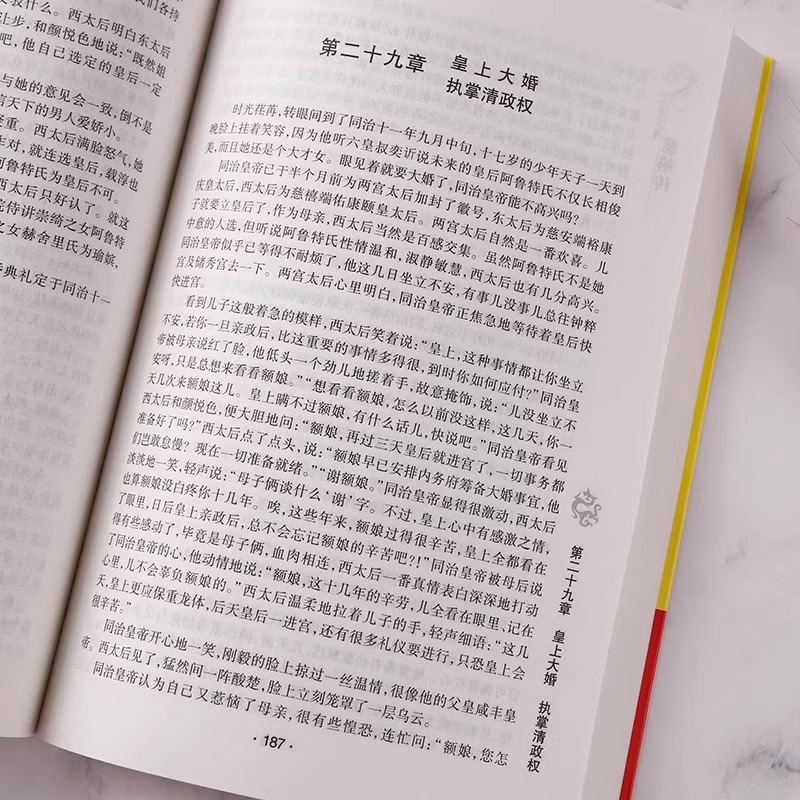 让步，和颜悦色地说：“既然姐
吧，他自己选定的皇后一定
与她的意见会一致，倒不是
信天下的男人爱娇小。
西太后满脸怒气，她
作对，就连选皇后，载淳也
阿鲁特氏为皇后不可。
西太后只好认了。就这
院侍讲崇绮之女阿鲁特
之女赫舍里氏为瑜嫔，
典礼定于同治十一
第二十九章 皇上大婚
执掌清政权
时光荏苒，转眼间到了同治十一年九月中旬，十七岁的少年天子一天到
晚脸上挂着笑容，因为他听六皇叔奕䜣说未来的皇后阿鲁特氏不仅长相俊
美，而且她还是个大才女。眼见着就要大婚了，同治皇帝能不高兴吗？
同治皇帝已于半个月前为两宫太后加封了徽号，东太后为慈安端裕康
庆皇太后，西太后为慈禧端佑康颐皇太后。两宫太后自然是一番欢喜。儿
子就要立皇后了，作为母亲，西太后当然是百感交集。虽然阿鲁特氏不是她
中意的人选，但听说阿鲁特氏性情温和，淑静敏慧，西太后也有几分高兴。
同治皇帝似乎已等得不耐烦了，他这几日坐立不安，有事儿没事儿总往钟粹
宫及储秀宫去一下。两宫太后心里明白，同治皇帝正焦急地等待着皇后快
快进宫。
看到儿子这般着急的模样，西太后笑着说：“皇上，这种事情都让你坐立
不安，若你一旦亲政后，比这重要的事情多得很，到时你如何应付？”同治皇
帝被母亲说红了脸，他低头一个劲儿地搓着手，故意掩饰，说：“儿没坐立不
安呀，只是总想来看看额娘。”“想看看额娘，怎么以前没这样，这几天，你一
天几次来额娘这儿。皇上瞒不过额娘，有什么话儿，快说吧。”同治皇帝看见
西太后和颜悦色，便大胆地问：“额娘，再过三天皇后就进宫了，一切事务都
准备好了吗？”西太后点了点头，说：“额娘早已安排内务府筹备大婚事宜，他
们岂敢怠慢？现在一切准备就绪。”“谢额娘。”同治皇帝显得很激动，西太后
淡淡地一笑，轻声说：“母子俩谈什么‘谢’字。不过，皇上心中有感激之情，
也算额娘没白疼你十几年。唉，这些年来，额娘过得很辛苦，皇上全都看在
了眼里，日后皇上亲政后，总不会忘记额娘的辛苦吧？！”同治皇帝被母后说
得有些感动了，毕竟是母子俩，血肉相连，西太后一番真情表白深深地打动
了同治皇帝的心，他动情地说：“额娘，这十几年的辛劳，儿全看在眼里、记在
心里，儿不会辜负额娘的。”西太后温柔地拉着儿子的手，轻声细语：“这几
天，皇上更应保重龙体，后天皇后一进宫，还有很多礼仪要进行，只恐皇上会
很辛苦。”
同治皇帝开心地一笑，刚毅的脸上掠过一丝温情，很像他的父皇咸丰皇
帝。西太后见了，猛然间一阵酸楚，脸上立刻笼罩了一层乌云。
同治皇帝认为自己又惹恼了母亲，很有些惶恐，连忙问：“额娘，您怎
·187·
第二十九章 皇上大婚 执掌清政权